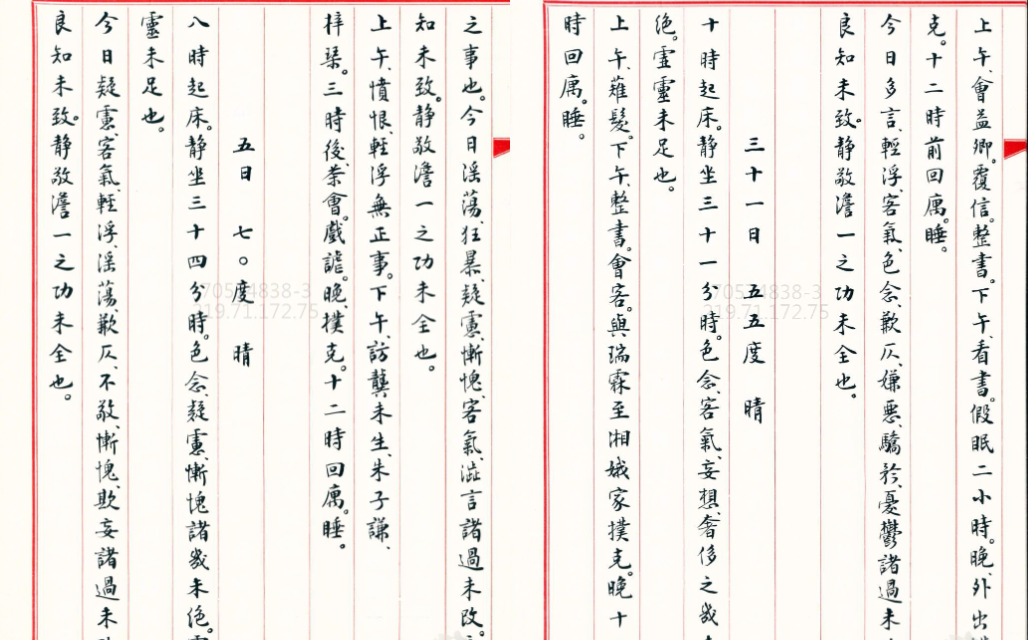 上午、會益卿。覆信。整書。下午、看書。假眠二小時。晚、外出
克。十二時前回寓。睡。
今日多言、輕浮、客氣、色念、歉仄、嫌惡、驕矜、憂鬱諸過未
良知未致。静敬澹一之功未全也。
三十一日 五五度 晴
十時起床。静坐三十一分時。色念、客氣、妄想、奢侈之幾
绝。靈靈未足也。
上午、薙髮。下午、整書。會客。與瑞霖至湘娥家撲克。晚十
時回寓。睡。
之事也。今日淫蕩、狂暴、疑慮、慚愧、客氣、謊言諸過未改。
知未致。静敬澹一之功未全也。
上午、憤恨、輕浮無正事。下午、訪龔未生、朱子謙、
梓琹。三時後、茶會。戲謔。晚、撲克。十二時回寓。睡。
五日 七〇度 晴
八時起床。静坐三十四分時。色念、疑慮、慚愧諸幾未绝。靈
靈未足也。
今日疑慮、客氣、輕浮、淫蕩、歉仄、不敬、慚愧、欺妄諸過未
良知未致。静敬澹一之功未全也。
70534838-3
219.71.172.75
70534838-3
219.71.172.75